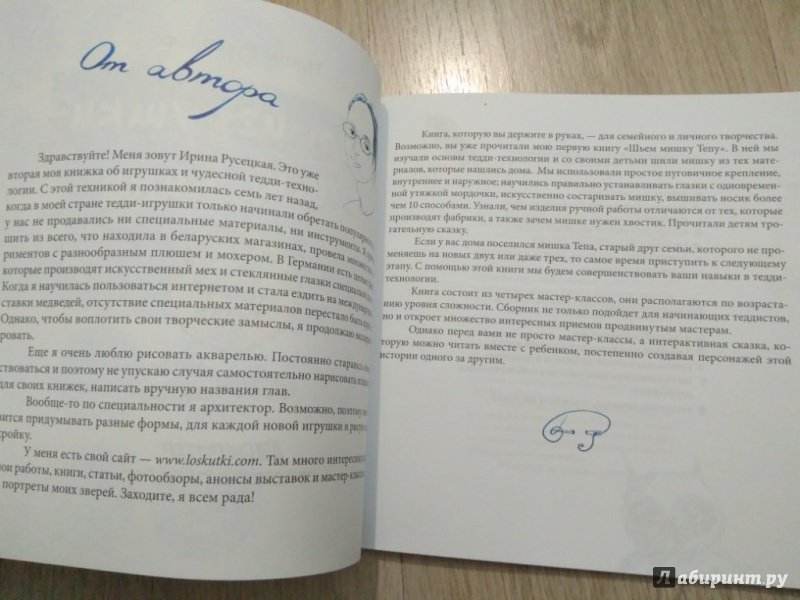 От автора
Здравствуйте! Меня зовут Ирина Русецкая. Это уже
вторая моя книжка об игрушках и чудесной тедди-техно-
логии. С этой техникой я познакомилась семь лет назад,
когда в моей стране тедди-игрушки только начинали обретать
у нас не продавались ни специальные материалы, ни инструменты.
шить из всего, что находила в беларуских магазинах, провела
риментов с разнообразным плюшем и мохером. В Германии есть
которые производят искусственный мех и стеклянные глазки
Когда я научилась пользоваться интернетом и стала ездить на
ставки медведей, отсутствие специальных материалов перестало быть
Однако, чтобы воплотить свои творческие замыслы, я продолжаю
ровать.
Еще я очень люблю рисовать акварелью. Постоянно стараюсь
ствоваться и поэтому не упускаю случая самостоятельно нарисовать
для своих книжек, написать вручную названия глав.
Вообще-то по специальности я архитектор. Возможно, поэтому
вится придумывать разные формы, для каждой новой игрушки я
кройку.
У меня есть свой сайт — www.loskutki.com. Там много
работы, книги, статьи, фотообзоры, анонсы выставок и
портреты моих зверей. Заходите, я всем рада!
Книга, которую вы держите в руках, — для семейного и личного творчества.
Возможно, вы уже прочитали мою первую книгу «Шьем мишку Тепу». В ней мы
изучали основы тедди-технологии и со своими детьми шили мишку из тех мате-
риалов, которые нашлись дома. Мы использовали простое пуговичное крепление,
внутреннее и наружное; научились правильно устанавливать глазки с одновремен-
ной утяжкой мордочки, искусственно состаривать мишку, вышивать носик более
чем 10 способами. Узнали, чем изделия ручной работы отличаются от тех, которые
производят фабрики, а также зачем мишке нужен хвостик. Прочитали детям тро-
гательную сказку.
Если у вас дома поселился мишка Тепа, старый друг семьи, которого не про-
меняешь на новых двух или даже трех, то самое время приступить к следующему
этапу. С помощью этой книги мы будем совершенствовать ваши навыки в тедди-
технологии.
Книга состоит из четырех мастер-классов, они располагаются по возраста-
нию уровня сложности. Сборник не только подойдет для начинающих теддистов,
но и откроет множество интересных приемов продвинутым мастерам.
Однако перед вами не просто мастер-классы, а интерактивная сказка, ко-
торую можно читать вместе с ребенком, постепенно создавая персонажей этой
истории одного за другим.
Лабиринт.ру